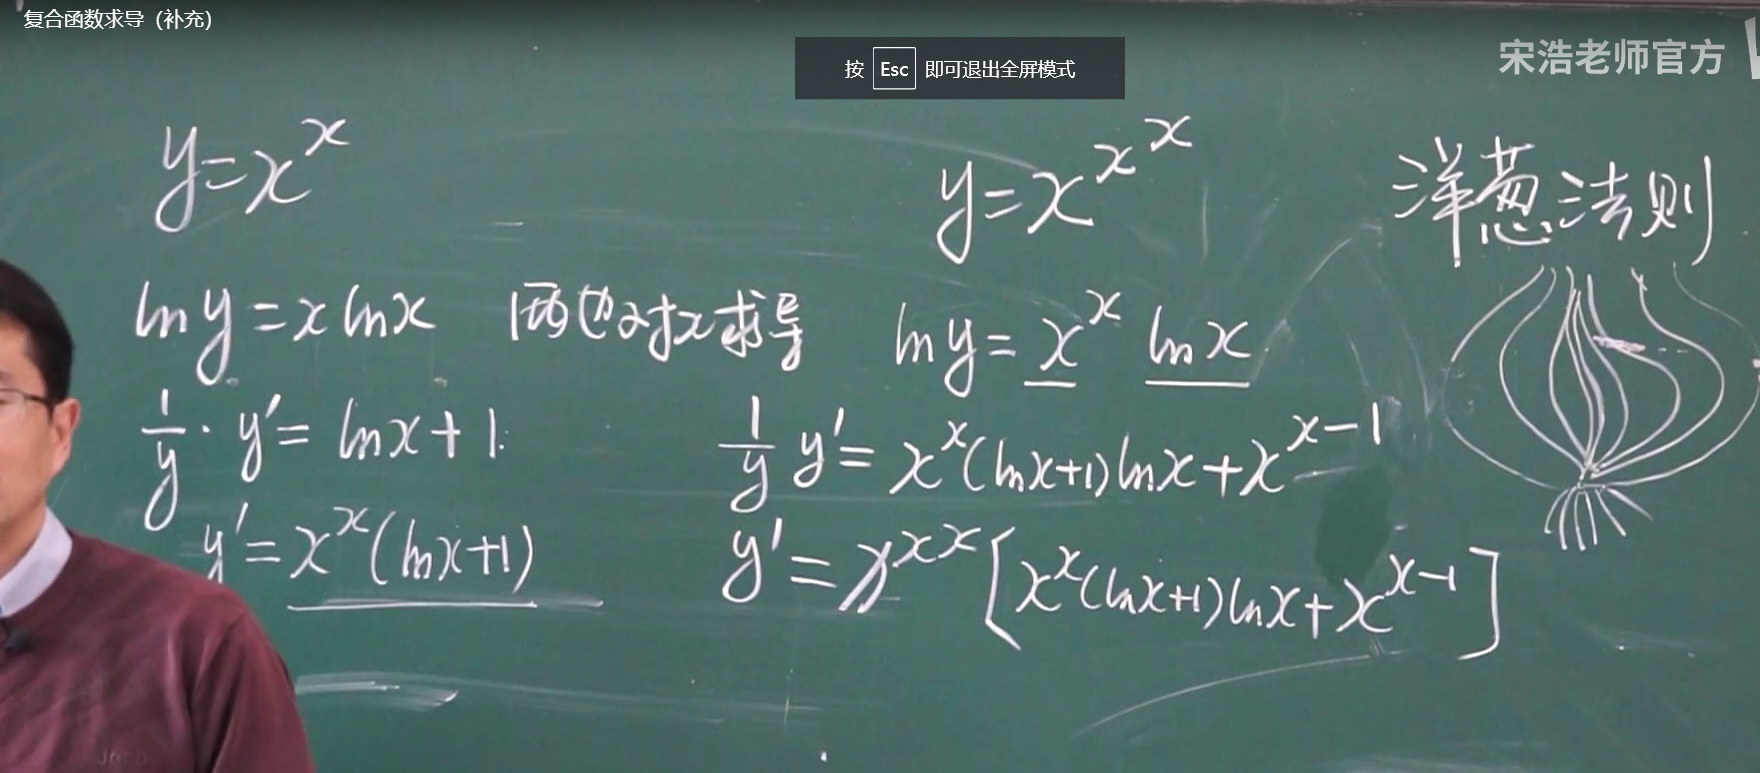 复合函数求导 (补充)
按 Esc 即可退出全屏模式
宋浩老师官方
y=x^x
ln y = x ln x 两边对x求导
1/y · y' = ln x + 1
y' = x^x (ln x + 1)
y = x^{x^x}
ln y = x^x ln x
1/y y' = x^x (ln x+1) ln x + x^{x-1}
y' = x^{x^x} [x^x (ln x+1) ln x + x^{x-1}]
洋葱法则